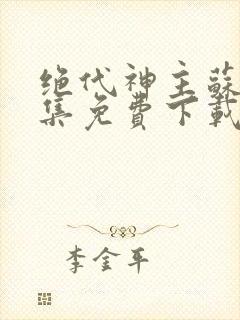 绝代神主蘇
集免費下載
李金平